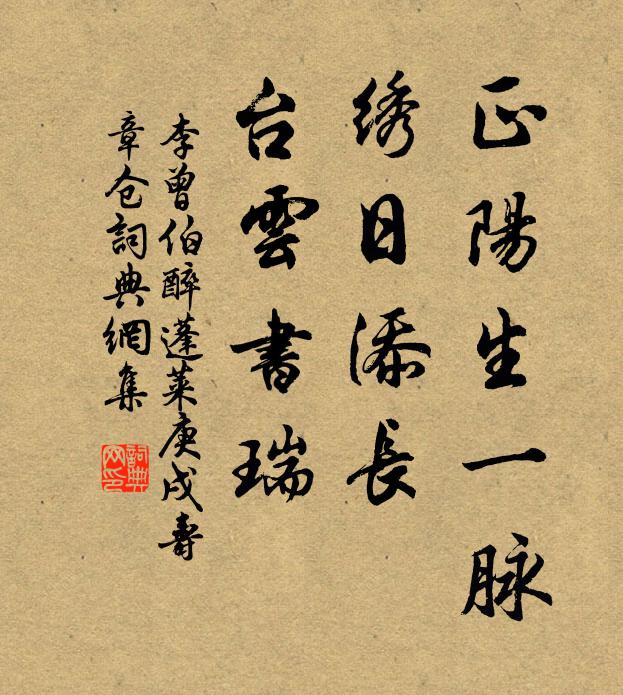 正陽生一脉
绣日添長
台雲書瑞
李曾伯醉蓬莱庚戌壽
章仓詞典網集
詞典網印